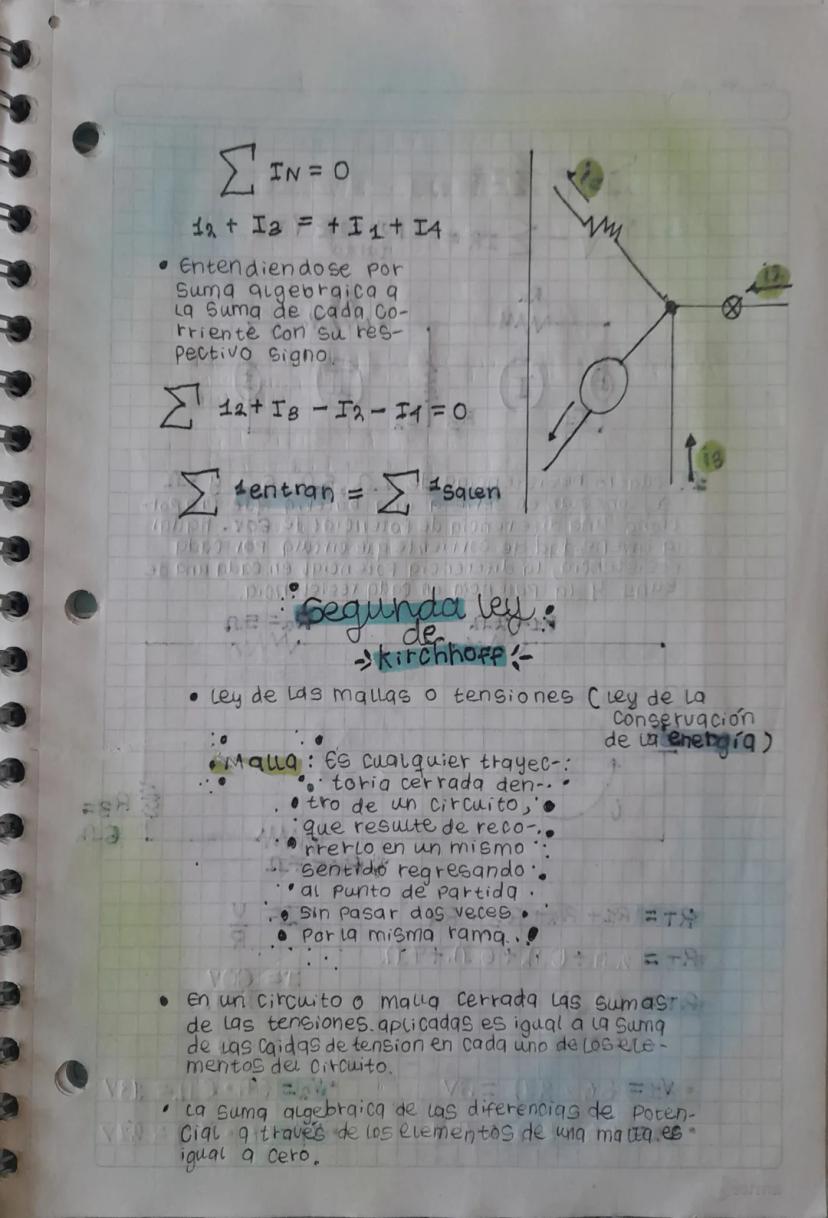 ∑ IN = 0
12 + I3 = + I1 + I4
• Entendiendose por
suma algebraica a
la suma de cada co-
rriente con su res-
pectivo signo.
∑ 12 + I3 - I2 - I1 = 0
∑ Ientran = ∑ Isalen
i2
i3
Segunda ley
de
Kirchhoff
• Ley de las mallas o tensiones (ley de la
conservación
de la energía)
Malla: Es cualquier trayec-
toria cerrada den-
tro de un circuito,
que resulte de reco-
rrerlo en un mismo
sentido regresando
al punto de partida
sin pasar dos veces
por la misma rama.
• En un circuito o malla cerrada las sumas
de las tensiones aplicadas es igual a la suma
de las caidas de tension en cada uno de los ele-
mentos del circuito.
• La suma algebraica de las diferencias de poten-
cial a través de los elementos de una malla es
igual a cero.